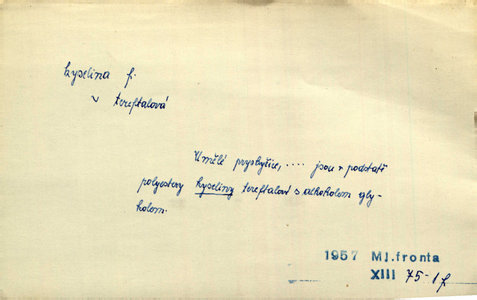 kyselina f.
v tereftalová
Umělé pryskyřice, .... jsou v podstatě
polyestery kyseliny tereftalové s alkoholem gly-
kolem.
1957 Ml.fronta
XIII 75-1f